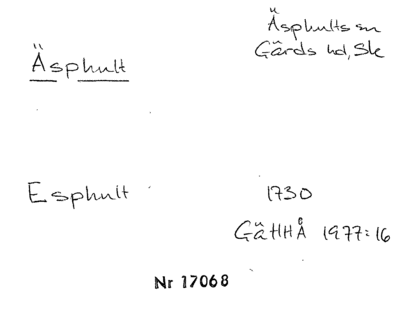 Äsphult
Äsphults sn
Gärds hd, Sk
Esphult
1730
GäHHÅ 1977:16
Nr 17068